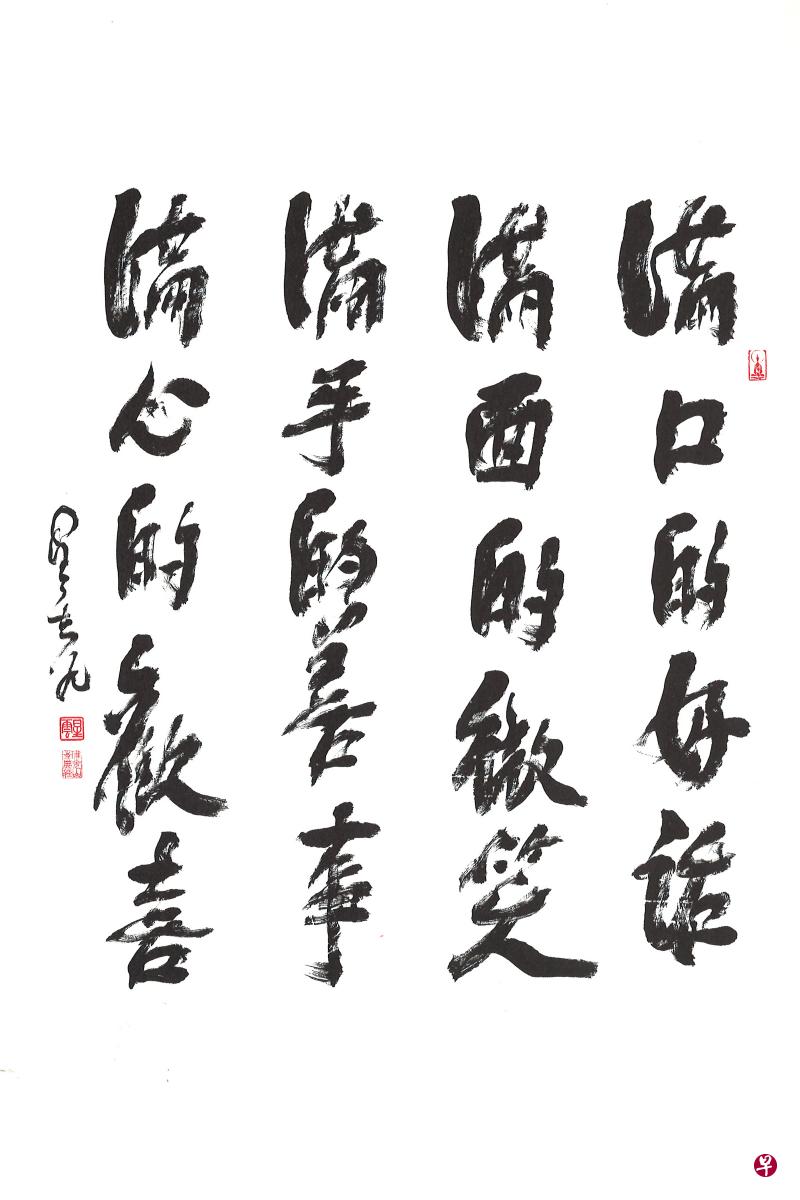 滿口的好話
滿面的微笑
滿手的善事
滿心的歡喜
星雲
早